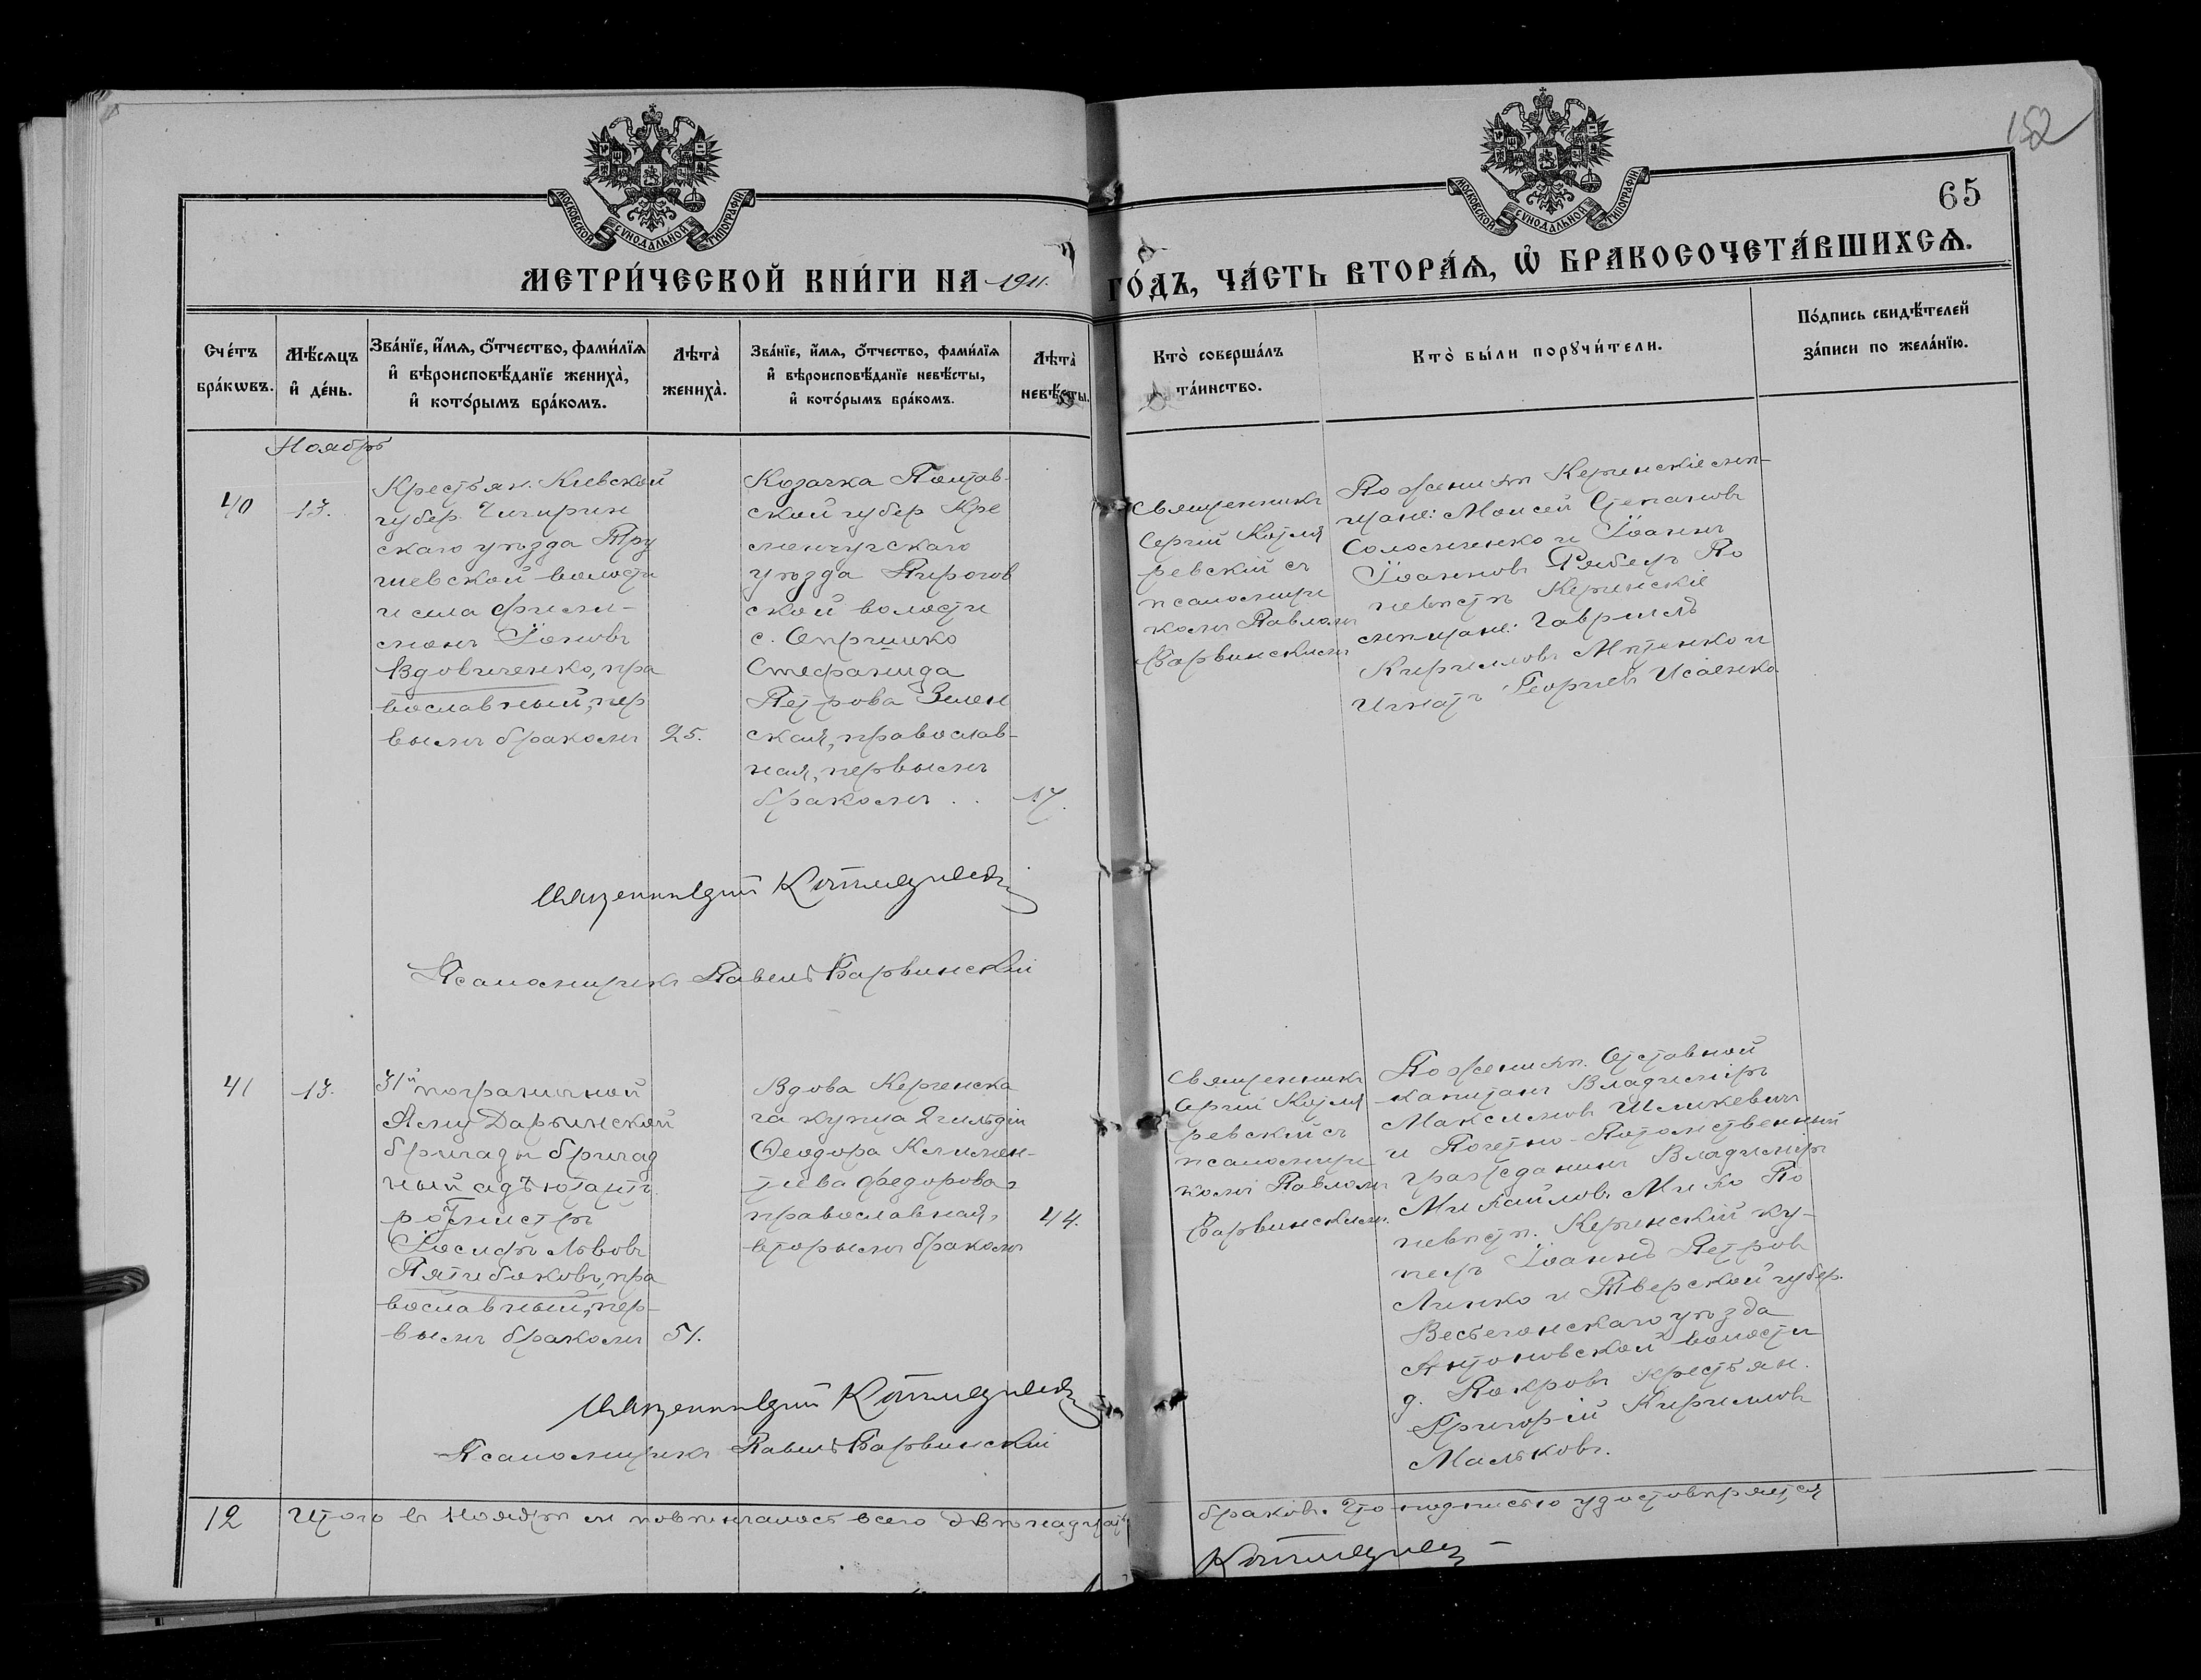 152
65
МОСКОВСКОЙ СѴНОДАЛЬНОЙ ТИПОГРАФІИ
МОСКОВСКОЙ СѴНОДАЛЬНОЙ ТИПОГРАФІИ
МЕТРИ́ЧЕСКОЙ КНИ́ГИ НА 1911. ГО́ДЪ, ЧА́СТЬ ВТОРА́Ѧ, Ѡ҆ БРАКОСОЧЕТА́ВШИХСѦ.
Сче́тъ
бра́кѡвъ.
Мѣ́сѧцъ
и҆ де́нь.
Зва́нїе, и҆́мѧ, ѻ҆́тчество, фами́лїѧ
и҆ вѣроисповѣ́данїе жениха̀,
и҆ кото́рымъ бра́комъ.
Лѣта̀
жениха̀.
Зва́нїе, и҆́мѧ, ѻ҆́тчество, фами́лїѧ
и҆ вѣроисповѣ́данїе невѣ́сты,
и҆ кото́рымъ бра́комъ.
Лѣта̀
невѣ́сты.
Кто̀ соверша́лъ
та́инство.
Кто̀ бы́ли порꙋчи́тели.
По́дпись свидѣ́телей
за́писи по жела́нїю.
Ноябрь
40
13.
Крестьян. Кіевской
губер. Чигирин
скаго уѣзда Тру
шевской волости
и села Фили-
монъ Іоновъ
Вдовиченко, пра
вославный, пер
вымъ бракомъ
25.
Козачка Полтав-
ской губер Кре
менчугскаго
уѣзда Пирогов
ской волости
с. Опришко
Стефанида
Петрова Зелен
ская, православ-
ная, первымъ
бракомъ . .
17.
Священникъ
Сергій Котля
ревскій съ
псаломщи
комъ Павломъ
Барвинскимъ
По женихѣ Керченскіе мѣ-
щане: Моисей Степановъ
Соломченко и Іоаннъ
Іоанновъ Рябецъ По
невѣстѣ Керченскіе
мѣщане: Гавріилъ
Кирилловъ Мѣтенко и
Игнатъ Георгіевъ Исаенко
Псаломщикъ Павелъ Барвинскій
41
13.
31й пограничной
Аму Дарьинской
бригады бригад
ный адъютантъ
ротмистръ
Іосифъ Львовъ
Пятибоковъ, пра
вославный, пер-
вымъ бракомъ
51.
Вдова Керченска
го купца 2 гильдіи
Ѳеодора Климен-
тіева Федорова
православная,
вторымъ бракомъ
44.
Священникъ
Сергій Котля
ревскій съ
псаломщи
комъ Павломъ
Барвинскимъ.
По женихѣ. Отставной
капитанъ Владиміръ
Максимовъ Шелкевичъ
и Почетно-Потомственный
гражданинъ Владиміръ
Михайловъ Михо По
невѣстѣ. Керченскій ку-
пецъ Іоаннъ Петровъ
Линко и Тверской губер.
Весьегонскаго уѣзда
Антоновской волости
д. Покровъ крестьян.
Григорій Кирилловъ
Мальковъ.
Псаломщикъ Павелъ Барвинскій
12
Итого въ Ноябрѣ м повѣнчалось всего двѣнадцать
браковъ. Что подписью удостовѣряется